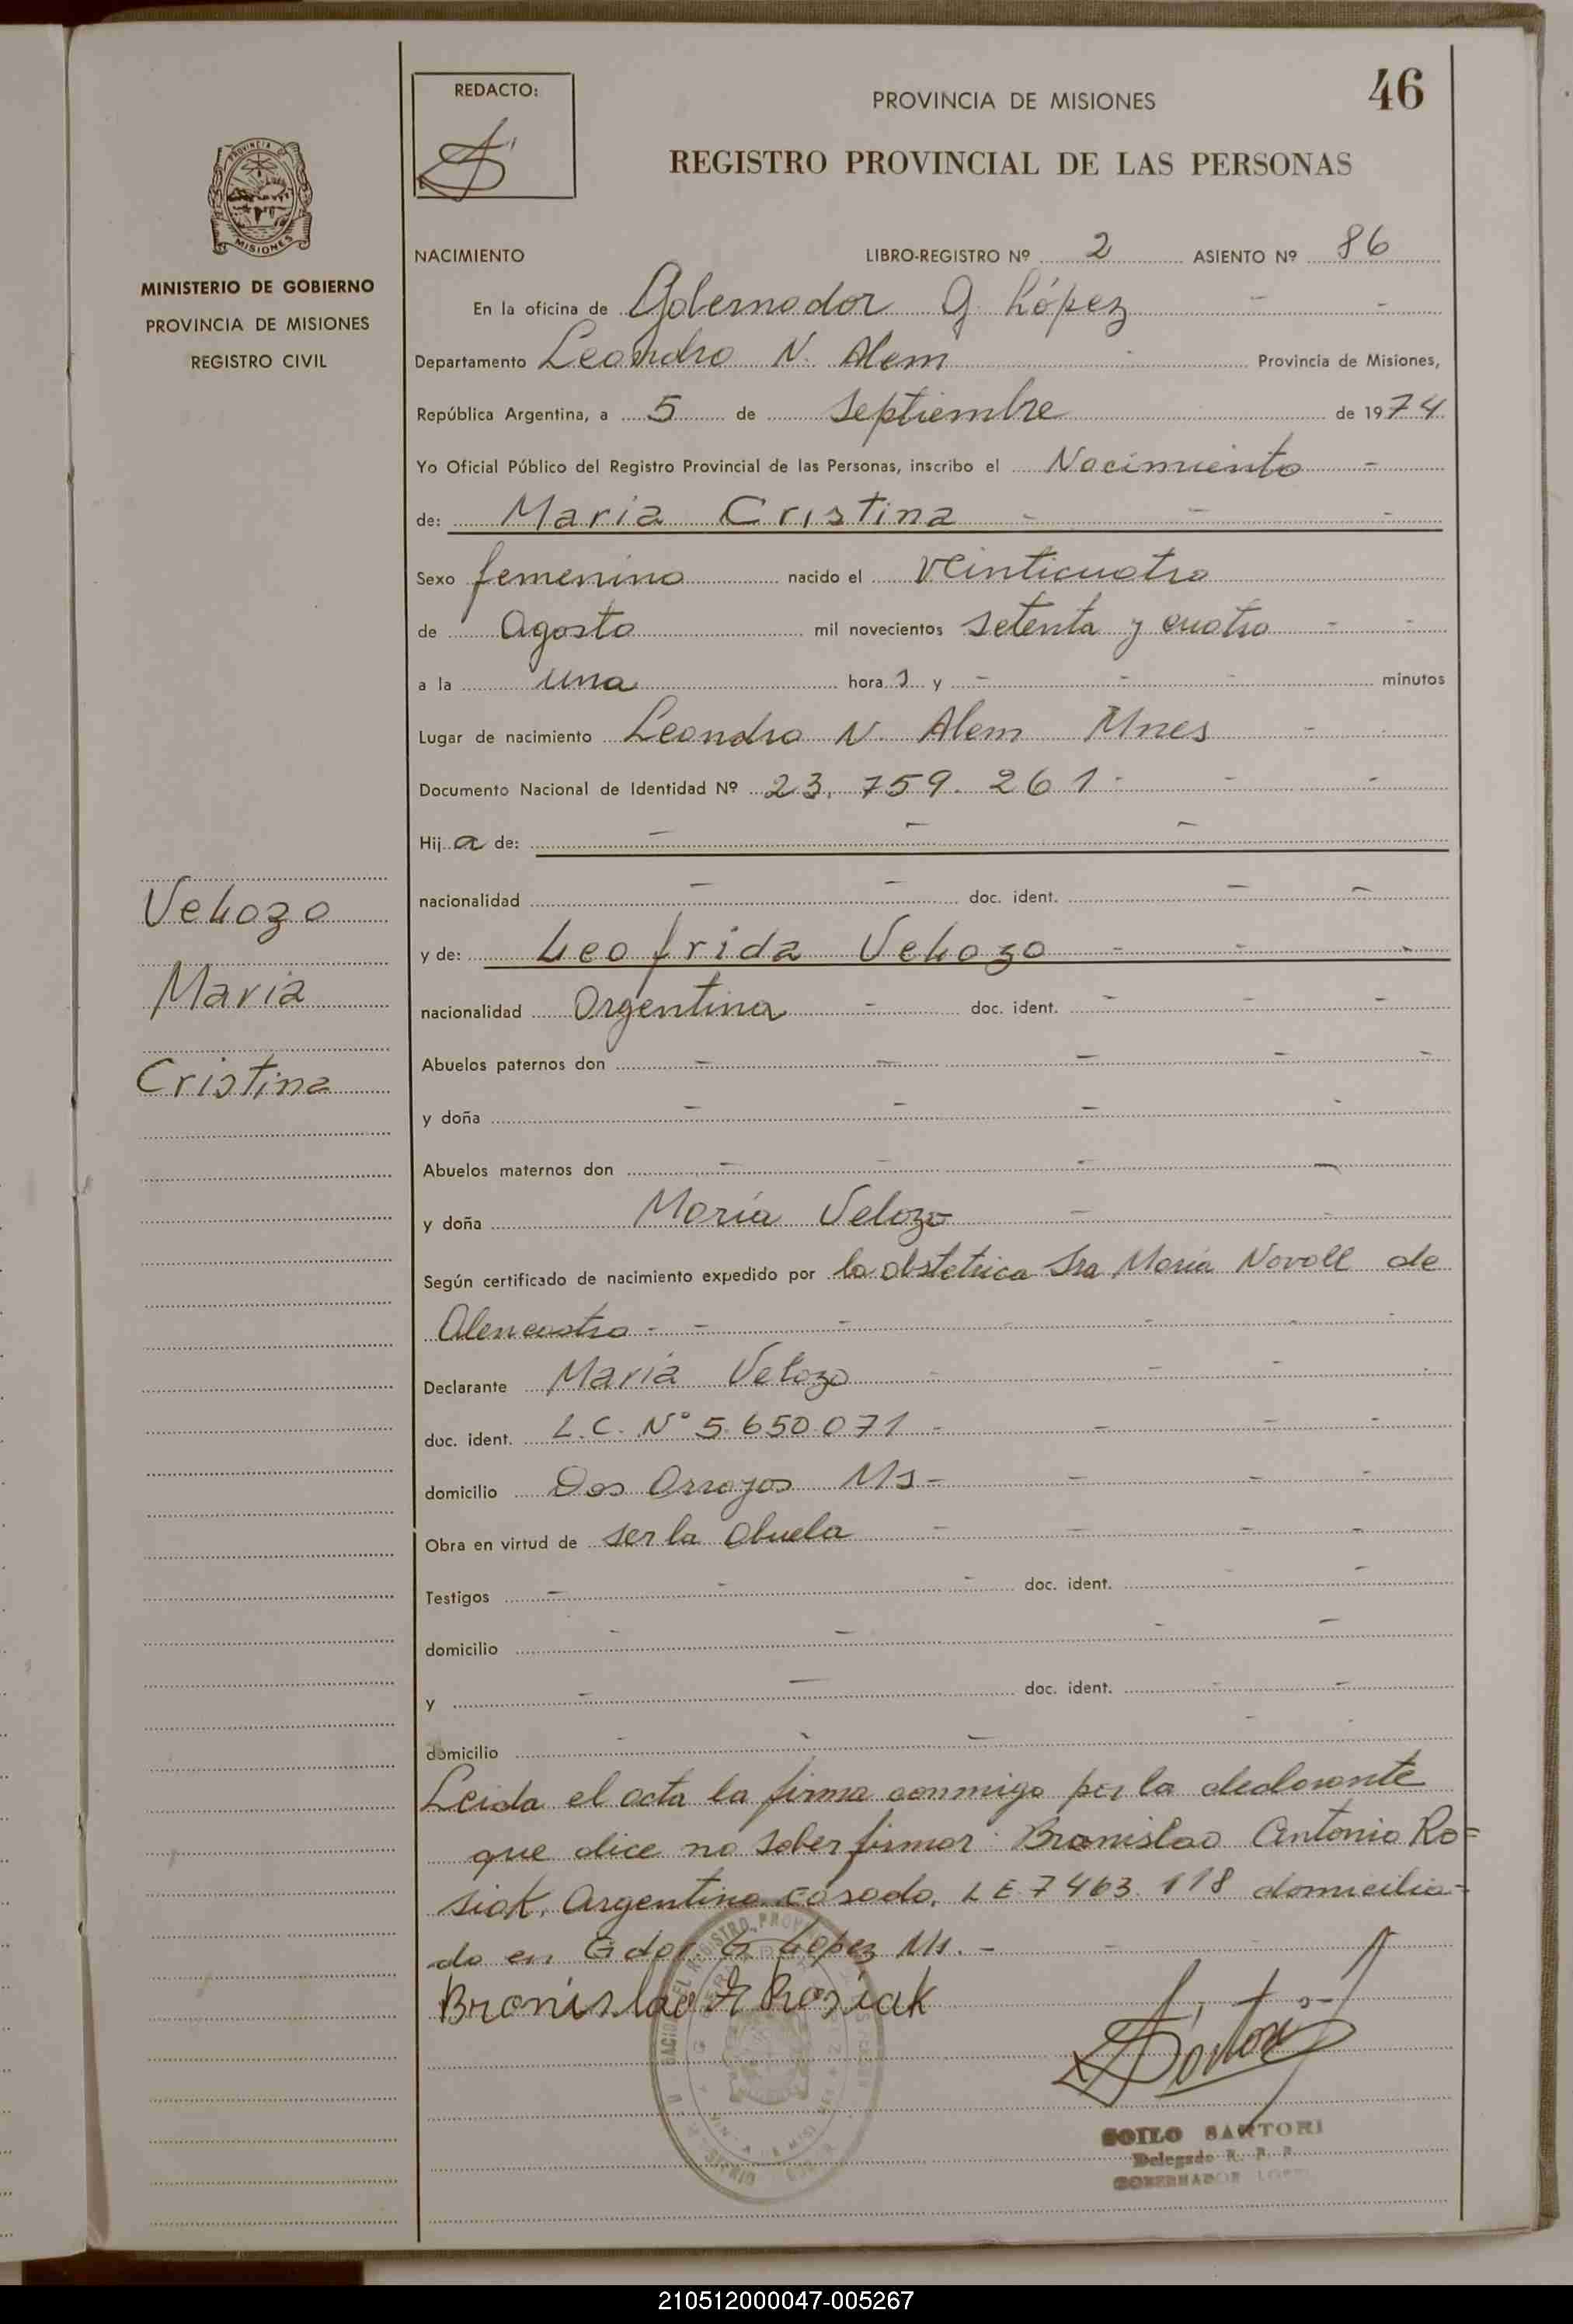 46
REDACTO:
PROVINCIA DE MISIONES
REGISTRO PROVINCIAL DE LAS PERSONAS
PROVINCIA DE
MISIONES
MINISTERIO DE GOBIERNO
PROVINCIA DE MISIONES
REGISTRO CIVIL
NACIMIENTO LIBRO-REGISTRO Nº 2 ASIENTO Nº 86
En la oficina de Gobernador G. López - -
Departamento Leandro N. Alem - Provincia de Misiones,
República Argentina, a 5 de Septiembre de 1974
Yo Oficial Público del Registro Provincial de las Personas, inscribo el Nacimiento -
de: Maria Cristina - - -
Sexo femenino nacido el veinticuatro
de Agosto mil novecientos setenta y cuatro - -
a la una hora s y - - - minutos
Lugar de nacimiento Leandro N. Alem Mnes - -
Documento Nacional de Identidad Nº 23.759.261 - - -
Hij a de: - - -
nacionalidad - - doc. ident. - -
y de: Leofrida Velozo - - -
nacionalidad Argentina - doc. ident. - - -
Abuelos paternos don - - - - -
y doña - - - -
Abuelos maternos don - - - -
y doña María Velozo - -
Según certificado de nacimiento expedido por la obstetrica Sra María Novoll de
Alencastro - - - - - - -
Declarante Maria Velozo - - - -
doc. ident. L.C. Nº 5.650.071 - - - -
domicilio Dos Arroyos Ms - - - -
Obra en virtud de ser la abuela - - - -
Testigos - - - doc. ident. - -
domicilio - - - -
y - - doc. ident. - -
domicilio - - - - -
Leida el acta la firma conmigo por la declarante
que dice no saber firmar: Bronislao Antonio Ro=
siak, Argentino casado, L E 7463.118 domicilia-
do en Gdor G Lopez Ms. - - - -
Bronislao A Rosiak
Sartori
SOILO SARTORI
Delegado R. P. P.
GOBERNADOR LOPEZ
Velozo
Maria
Cristina
210512000047-005267